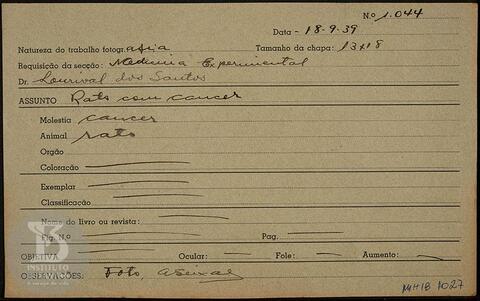 Nº 1.044
Data - 18-9-39
Natureza do trabalho fotogr.afia Tamanho da chapa: 13x18
Requisição da secção: Medicina Experimental
Dr. Lourival dos Santos
ASSUNTO Rato com cancer
Molestia cancer
Animal rato
Orgão
Coloração
Exemplar
Classificação
Nome do livro ou revista:
Fig. N.o Pag.
OBJETIVA Ocular: Fole: Aumento:
OBSERVAÇÕES: Foto, A Seixas
INSTITUTO
A serviço da vida
MHIB 1027